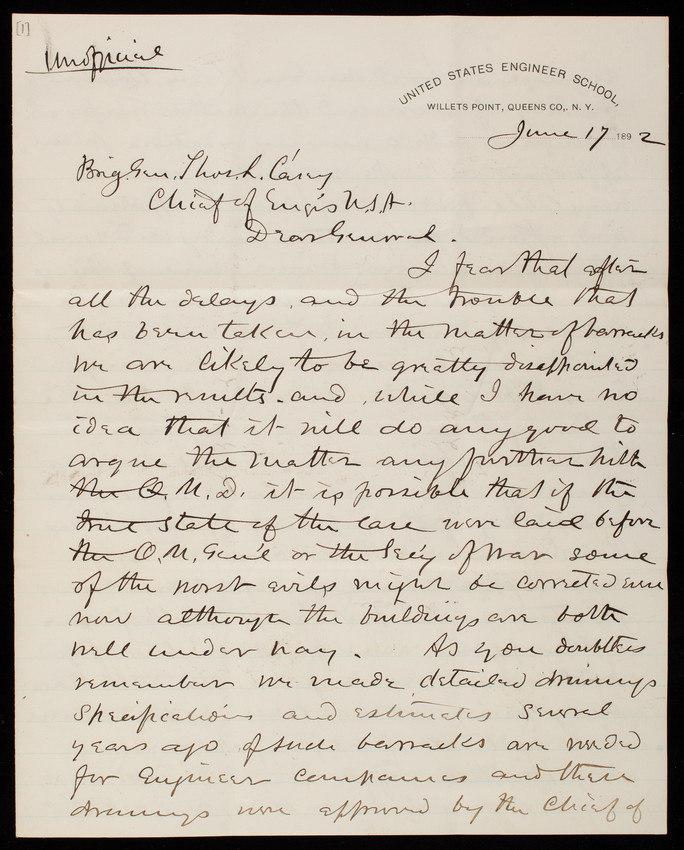 [1]
Unofficial
UNITED STATES ENGINEER SCHOOL,
WILLETS POINT, QUEENS CO,. N. Y.
June 17 1892
Brig. Gen. Thos. L. Casey
Chief of Engrs U.S.A.
Dear General.
I fear that after
all the delays, and the trouble that
has been taken, in the matter of barracks
we are likely to be greatly disappointed
in the results. and, while I have no
idea that it will do any good to
argue the matter any further with
the Q. M. D. it is possible that if the
true state of the case were laid before
the Q. M. Gen'l or the Sec'y of War some
of the worst evils might be corrected even
now although the buildings are both
well under way. As you doubtless
remember we made detailed drawings
specifications and estimates several
years ago of such barracks as are needed
for Engineer companies and these
drawings were approved by the Chief of